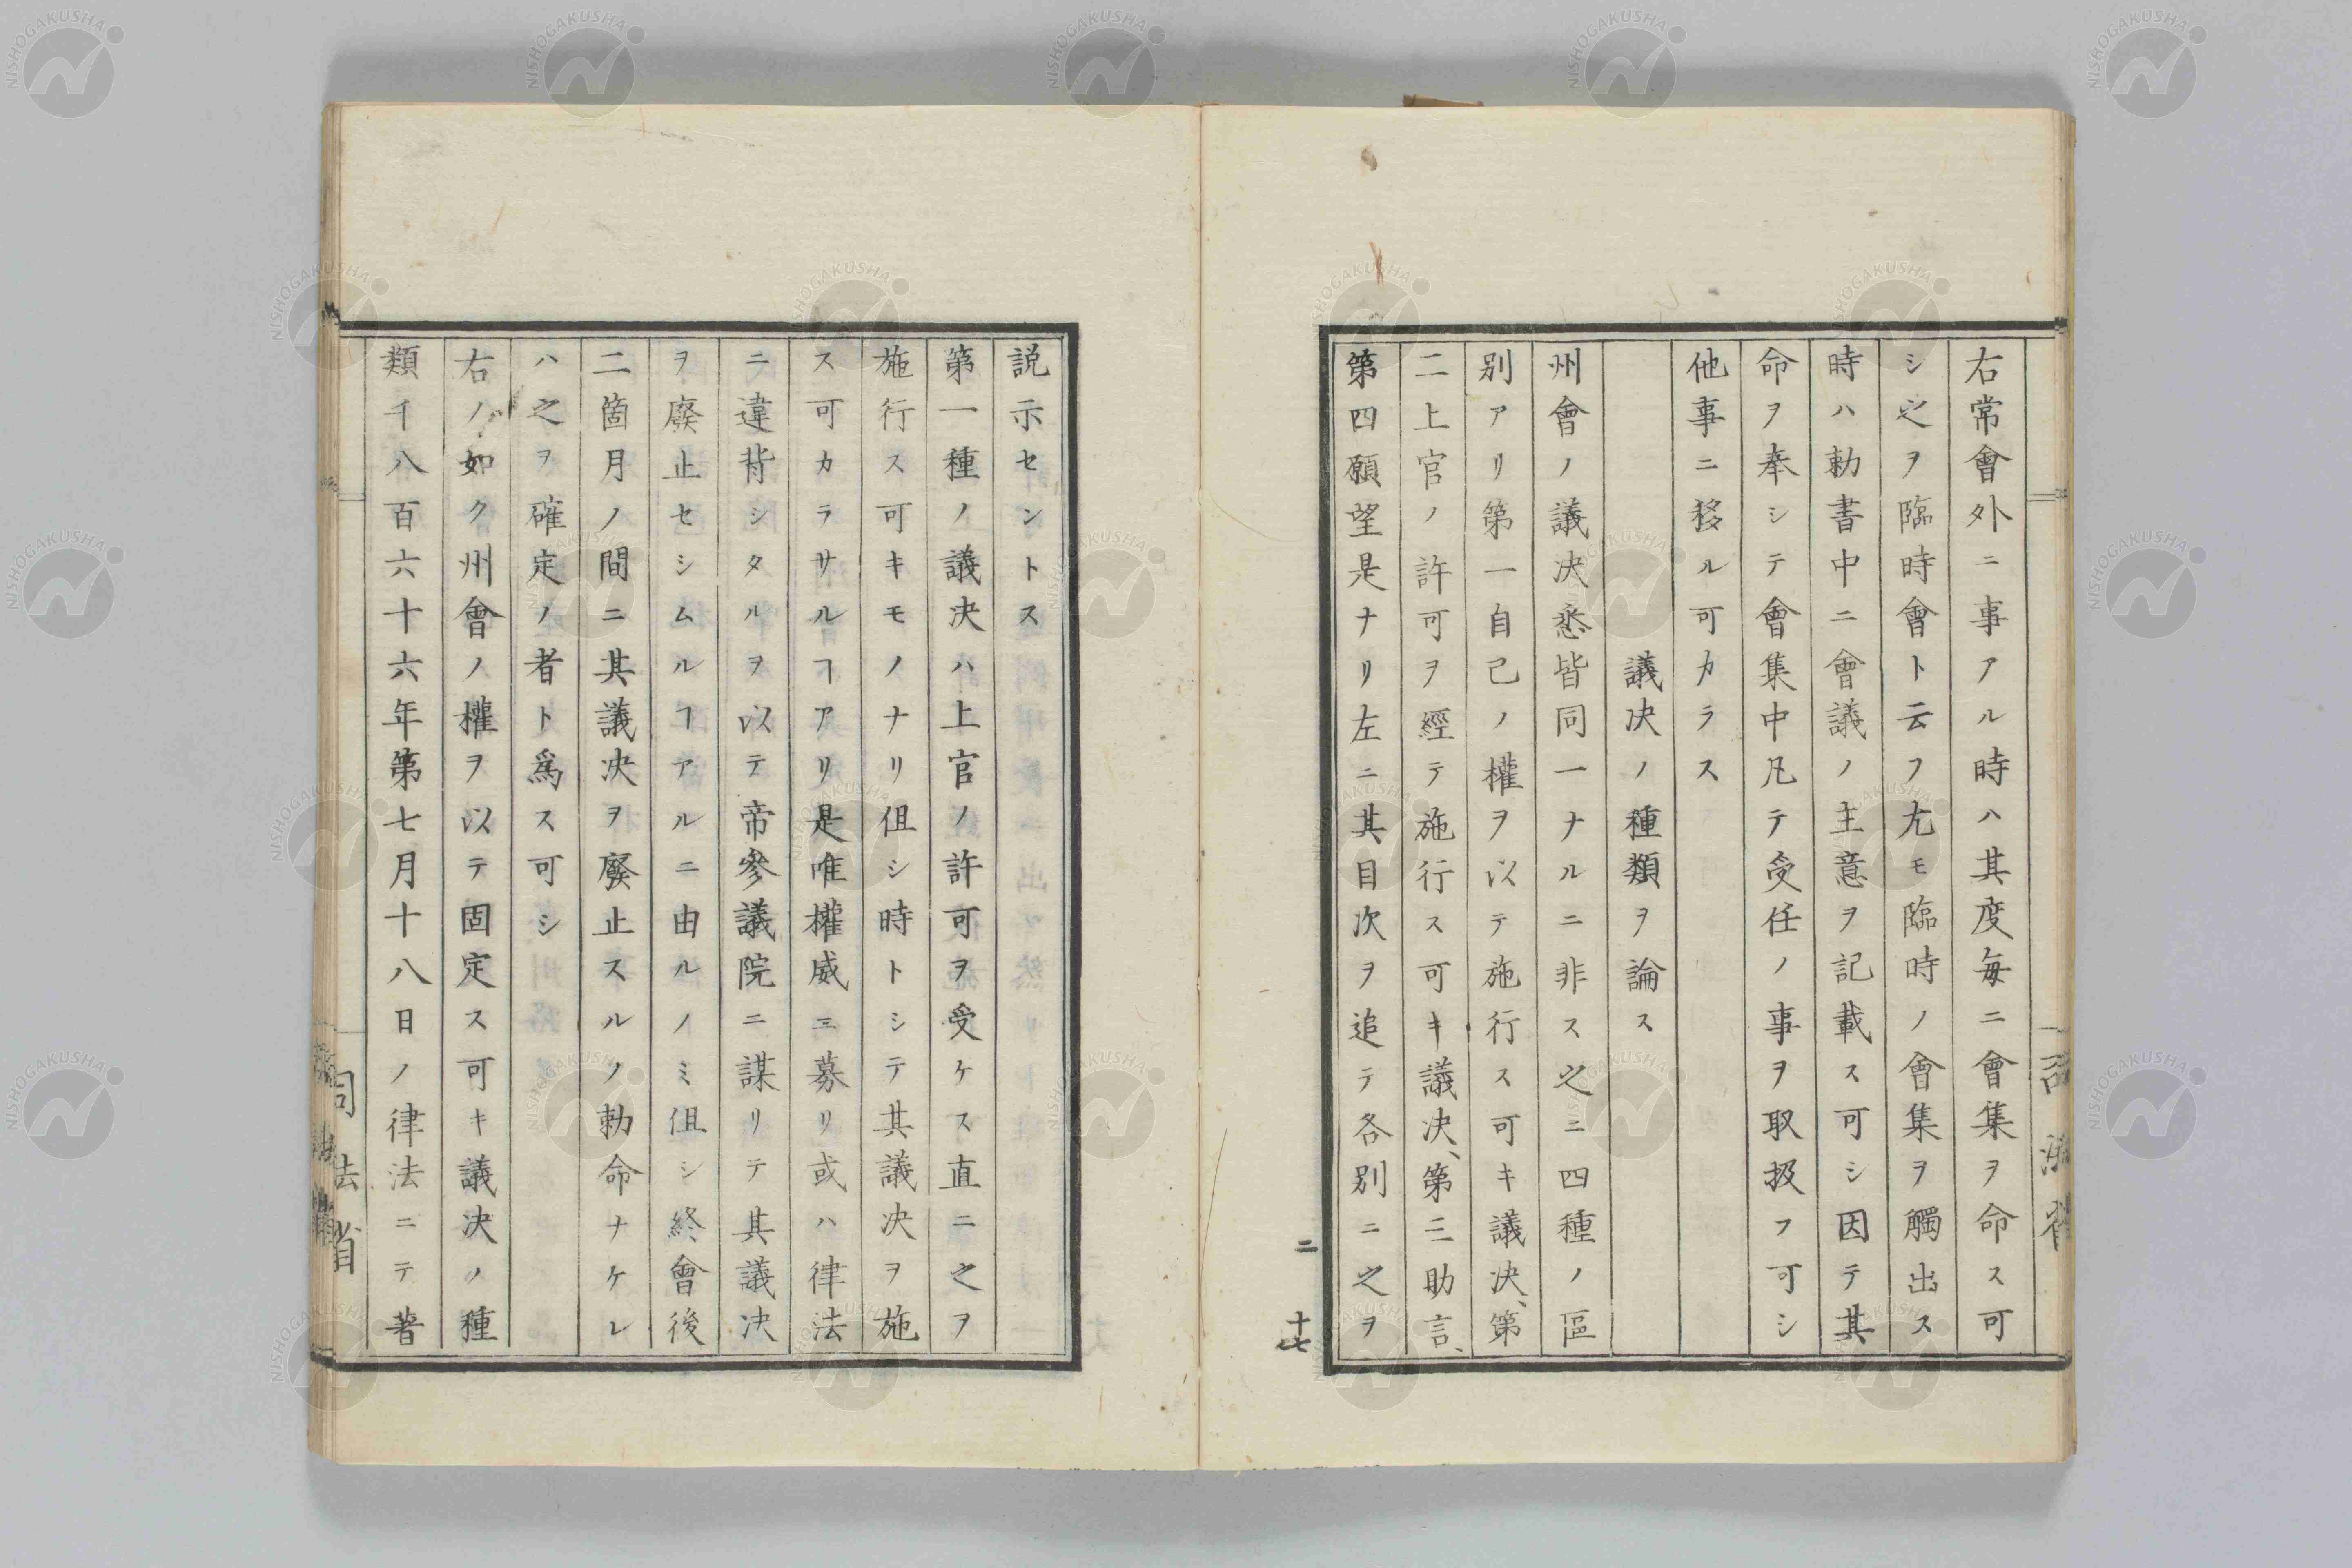 右常會外ニ事アル時ハ其度毎ニ會集ヲ命ス可
シ之ヲ臨時會ト云フ尤モ臨時ノ會集ヲ觸出ス
時ハ勅書中ニ會議ノ主意ヲ記載ス可シ因テ其
命ヲ奉シテ會集中凡テ受任ノ事ヲ取扱フ可シ
他事ニ移ル可カラス
議决ノ種類ヲ論ス
州會ノ議决悉皆同一ナルニ非ス之ニ四種ノ區
别アリ第一自己ノ權ヲ以テ施行ス可キ議决、第
二上官ノ許可ヲ經テ施行ス可キ議决、第三助言、
第四願望是ナリ左ニ其目次ヲ追テ各别ニ之ヲ
二
十七
説示セントス
第一種ノ議决ハ上官ノ許可ヲ受ケス直ニ之ヲ
施行ス可キモノナリ伹シ時トシテ其議决ヲ施
ス可カラサルヿアリ是唯權威ニ募リ或ハ律法
ニ違背シタルヲ以テ帝參議院ニ謀リテ其議决
ヲ廢止セシムルヿアルニ由ルノミ伹シ終會後
二箇月ノ間ニ其議决ヲ廢止スルノ勅命ナケレ
ハ之ヲ確定ノ者ト爲ス可シ
右ノ如ク州會ノ權ヲ以テ固定ス可キ議决ノ種
類千八百六十六年第七月十八日ノ律法ニテ著
司法省
NISHOGAKUSHA